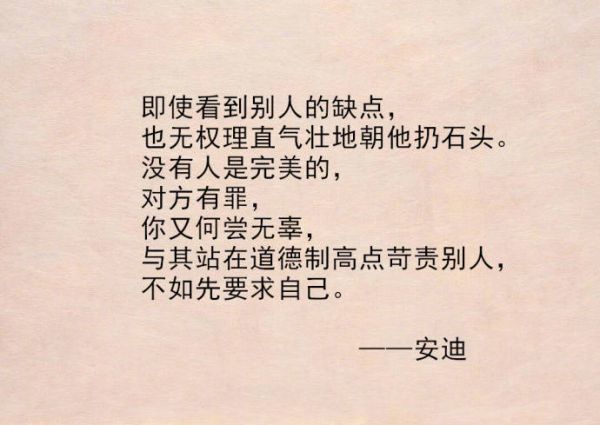 即使看到别人的缺点，
也无权理直气壮地朝他扔石头。
没有人是完美的，
对方有罪，
你又何尝无辜，
与其站在道德制高点苛责别人，
不如先要求自己。
——安迪